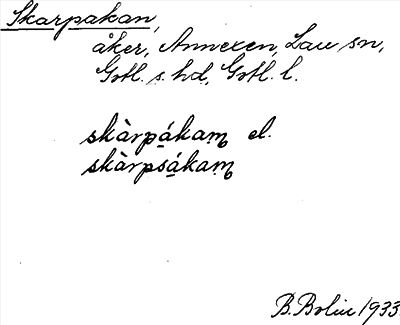 Skarpakan,
åker, Annexen, Lau sn,
Gotl. s. hd, Gotl. l.
skàrpá̱kam̥ el.
skàrpsá̱kam̥
B. Bolin 1933.